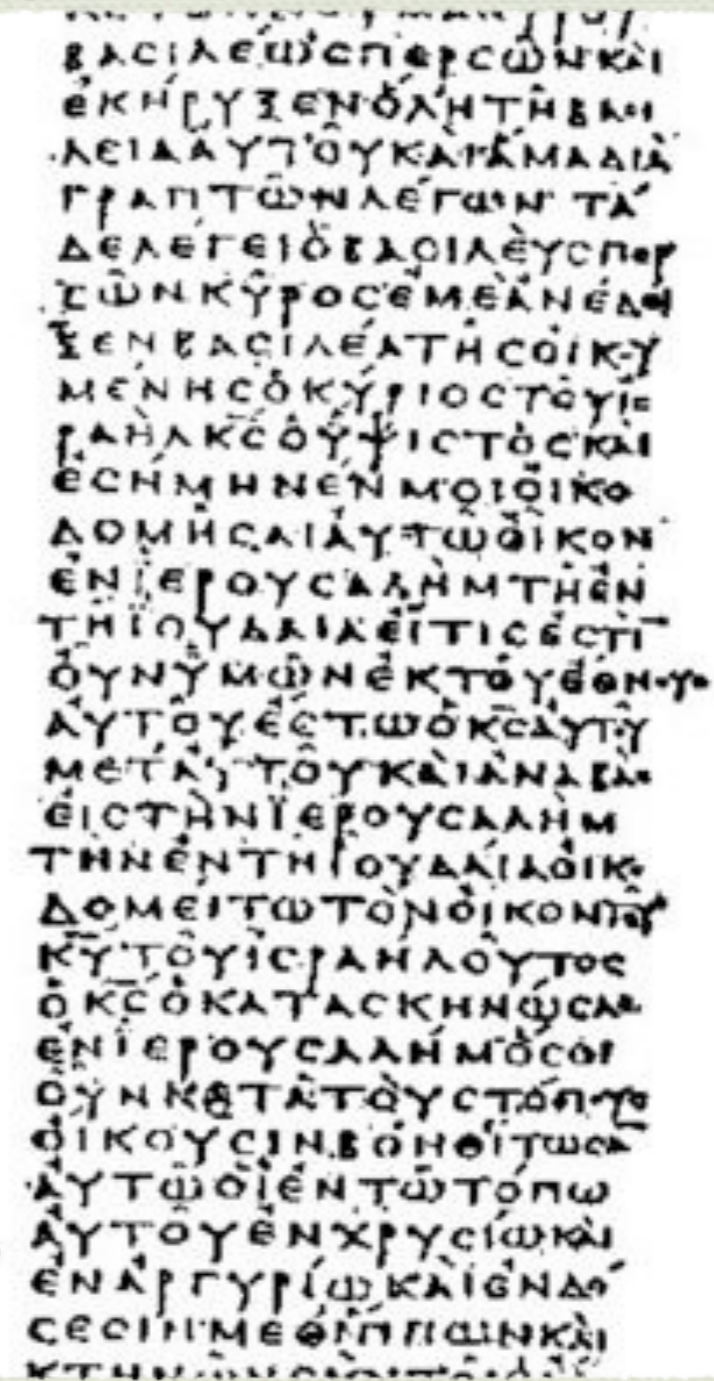 ΒΑϹΙΛΕΩϹΠΕΡϹΩΝΚΑΙ
ΕΚΗΡΥΞΕΝΟΛΗΤΗΒΑϹΙ
ΛΕΙΑΑΥΤΟΥΚΑΙΑΜΑΔΙΑ
ΓΡΑΠΤΩΝΛΕΓΩΝΤΑ
ΔΕΛΕΓΕΙΟΒΑϹΙΛΕΥϹΠΕΡ
ϹΩΝΚΥΡΟϹΕΜΕΑΝΕΔΕΙ
ΞΕΝΒΑϹΙΛΕΑΤΗϹΟΙΚΟΥ
ΜΕΝΗϹΟΚΥΡΙΟϹΤΟΥΙϹ
ΡΑΗΛΚ̅Ϲ̅ΟΥΨΙϹΤΟϹΚΑΙ
ΕϹΗΜΗΝΕΝΜΟΙΟΙΚΟ
ΔΟΜΗϹΑΙΑΥΤΩΟΙΚΟΝ
ΕΝΙΕΡΟΥϹΑΛΗΜΤΗΕΝ
ΤΗΪΟΥΔΑΙΑΕΙΤΙϹΕϹΤΙ̅
ΟΥΝΥΜΩΝΕΚΤΟΥΕΘΝΟΥϹ
ΑΥΤΟΥΕϹΤΩΟΚ̅Ϲ̅ΑΥΤΟΥ
ΜΕΤΑΥΤΟΥΚΑΙΑΝΑΒΑϹ
ΕΙϹΤΗΝΪΕΡΟΥϹΑΛΗΜ
ΤΗΝΕΝΤΗΙΟΥΔΑΙΑΟΙΚΟ
ΔΟΜΕΙΤΩΤΟΝΟΙΚΟΝΤΟΥ
Κ̅Υ̅ΤΟΥΙϹΡΑΗΛΟΥΤΟϹ
ΟΚ̅Ϲ̅ΟΚΑΤΑϹΚΗΝΩϹΑϹ
ΕΝΪΕΡΟΥϹΑΛΗΜΟϹΟΙ
ΟΥΝΚΑΤΑΤΟΥϹΤΟΠΟΥϹ
ΟΙΚΟΥϹΙΝΒΟΗΘΙΤΩϹΑ̅
ΑΥΤΩΟΙΕΝΤΩΤΟΠΩ
ΑΥΤΟΥΕΝΧΡΥϹΙΩΚΑΙ
ΕΝΑΡΓΥΡΙΩΚΑΙΕΝΔΟ
ϹΕϹΙΝΜΕΘΙΠΠΩΝΚΑΙ